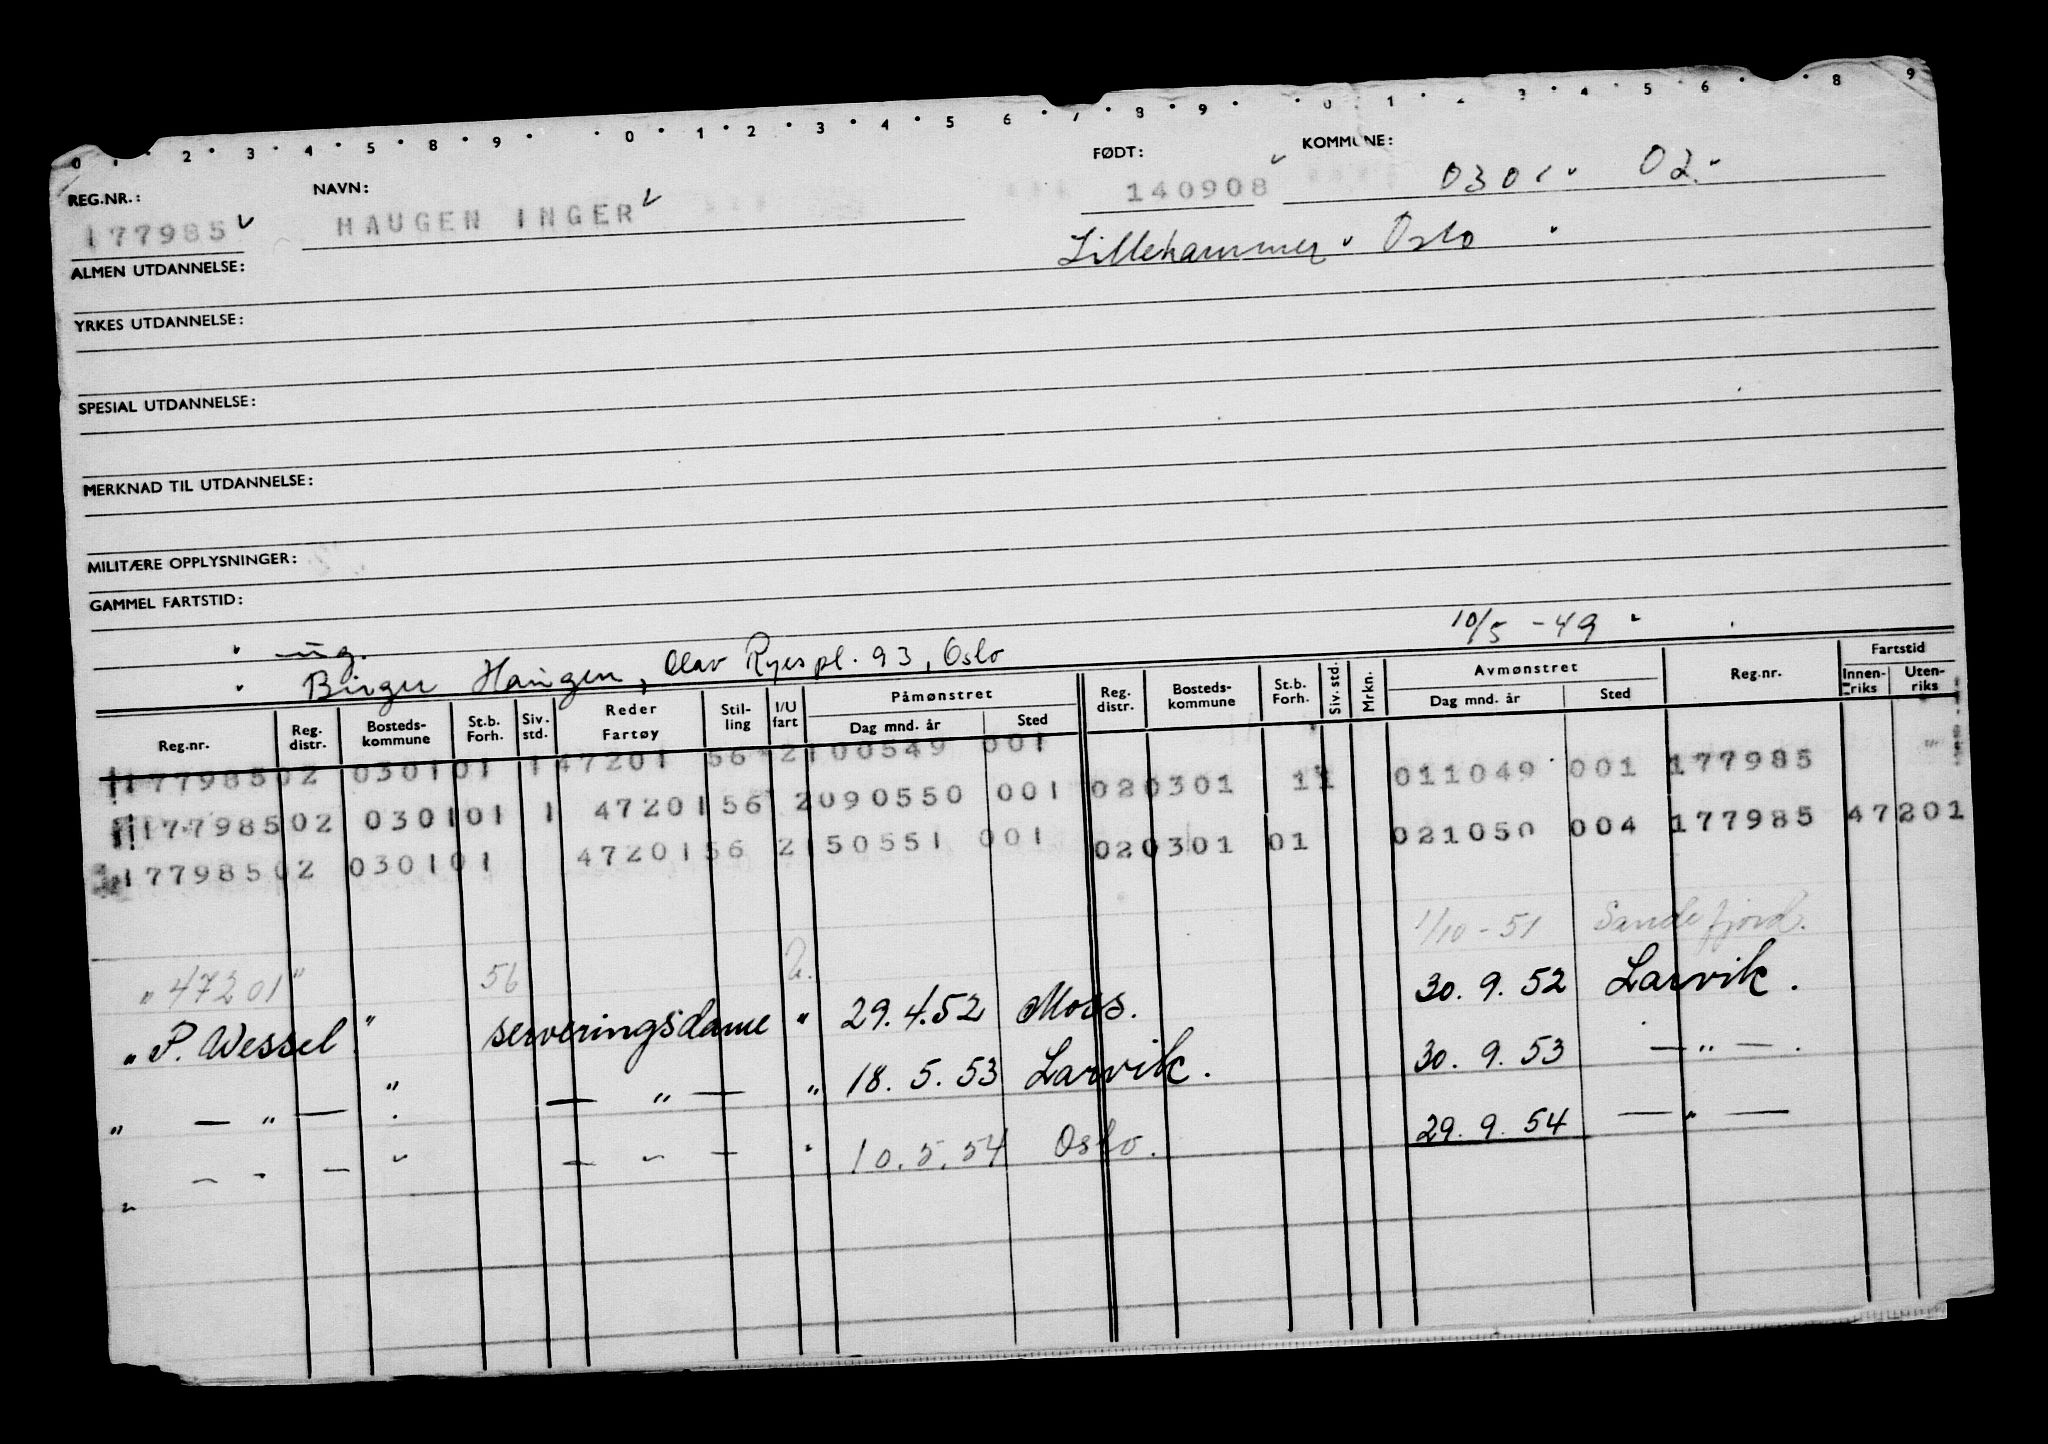 0 · · 2 · 3 · 4 · 5 · 8 · 9 · · 0 · 1 · 2 · 3 · 4 · 5 · 6 · 7 · 8 · 9 · · 0 · 1 · 2 · 3 · 4 · 5 · 6 · · 8 · 9
REG.NR.: NAVN: FØDT: KOMMUNE:
177985 HAUGEN INGER 140908 0301. 02.
Lillehammer Oslo
ALMEN UTDANNELSE:
YRKES UTDANNELSE:
SPESIAL UTDANNELSE:
MERKNAD TIL UTDANNELSE:
MILITÆRE OPPLYSNINGER:
GAMMEL FARTSTID:
ug. 10/5 - 49
Birger Haugen, Olav Ryes pl. 93, Oslo
Reg.nr. Reg. distr. Bosteds-kommune St.b. Forh. Siv. std. Reder Fartøy Stil-ling I/U fart Påmønstret Dag mnd. år Sted Reg. distr. Bosteds-kommune St.b. Forh. Siv. std. Mrkn. Avmønstret Dag mnd. år Sted Reg.nr. Fartstid Innen-riks Uten-riks
177985 02 0301 01 1 47201 56 2 100549 001 02 0301 11 011049 001 177985
177985 02 0301 01 1 47201 56 2 090550 001 02 0301 01 021050 004 177985 47201
177985 02 0301 01 47201 56 2 150551 001
1/10 - 51 Sandefjord.
"47201" 56 U.
"P. Wessel" serveringsdame " 29.4.52 Moss. 30. 9. 52 Larvik.
" — " — " — " — " 18. 5. 53 Larvik. 30. 9. 53 — " —.
" — " — " — " — " 10. 5. 54 Oslo. 29. 9. 54 — " —